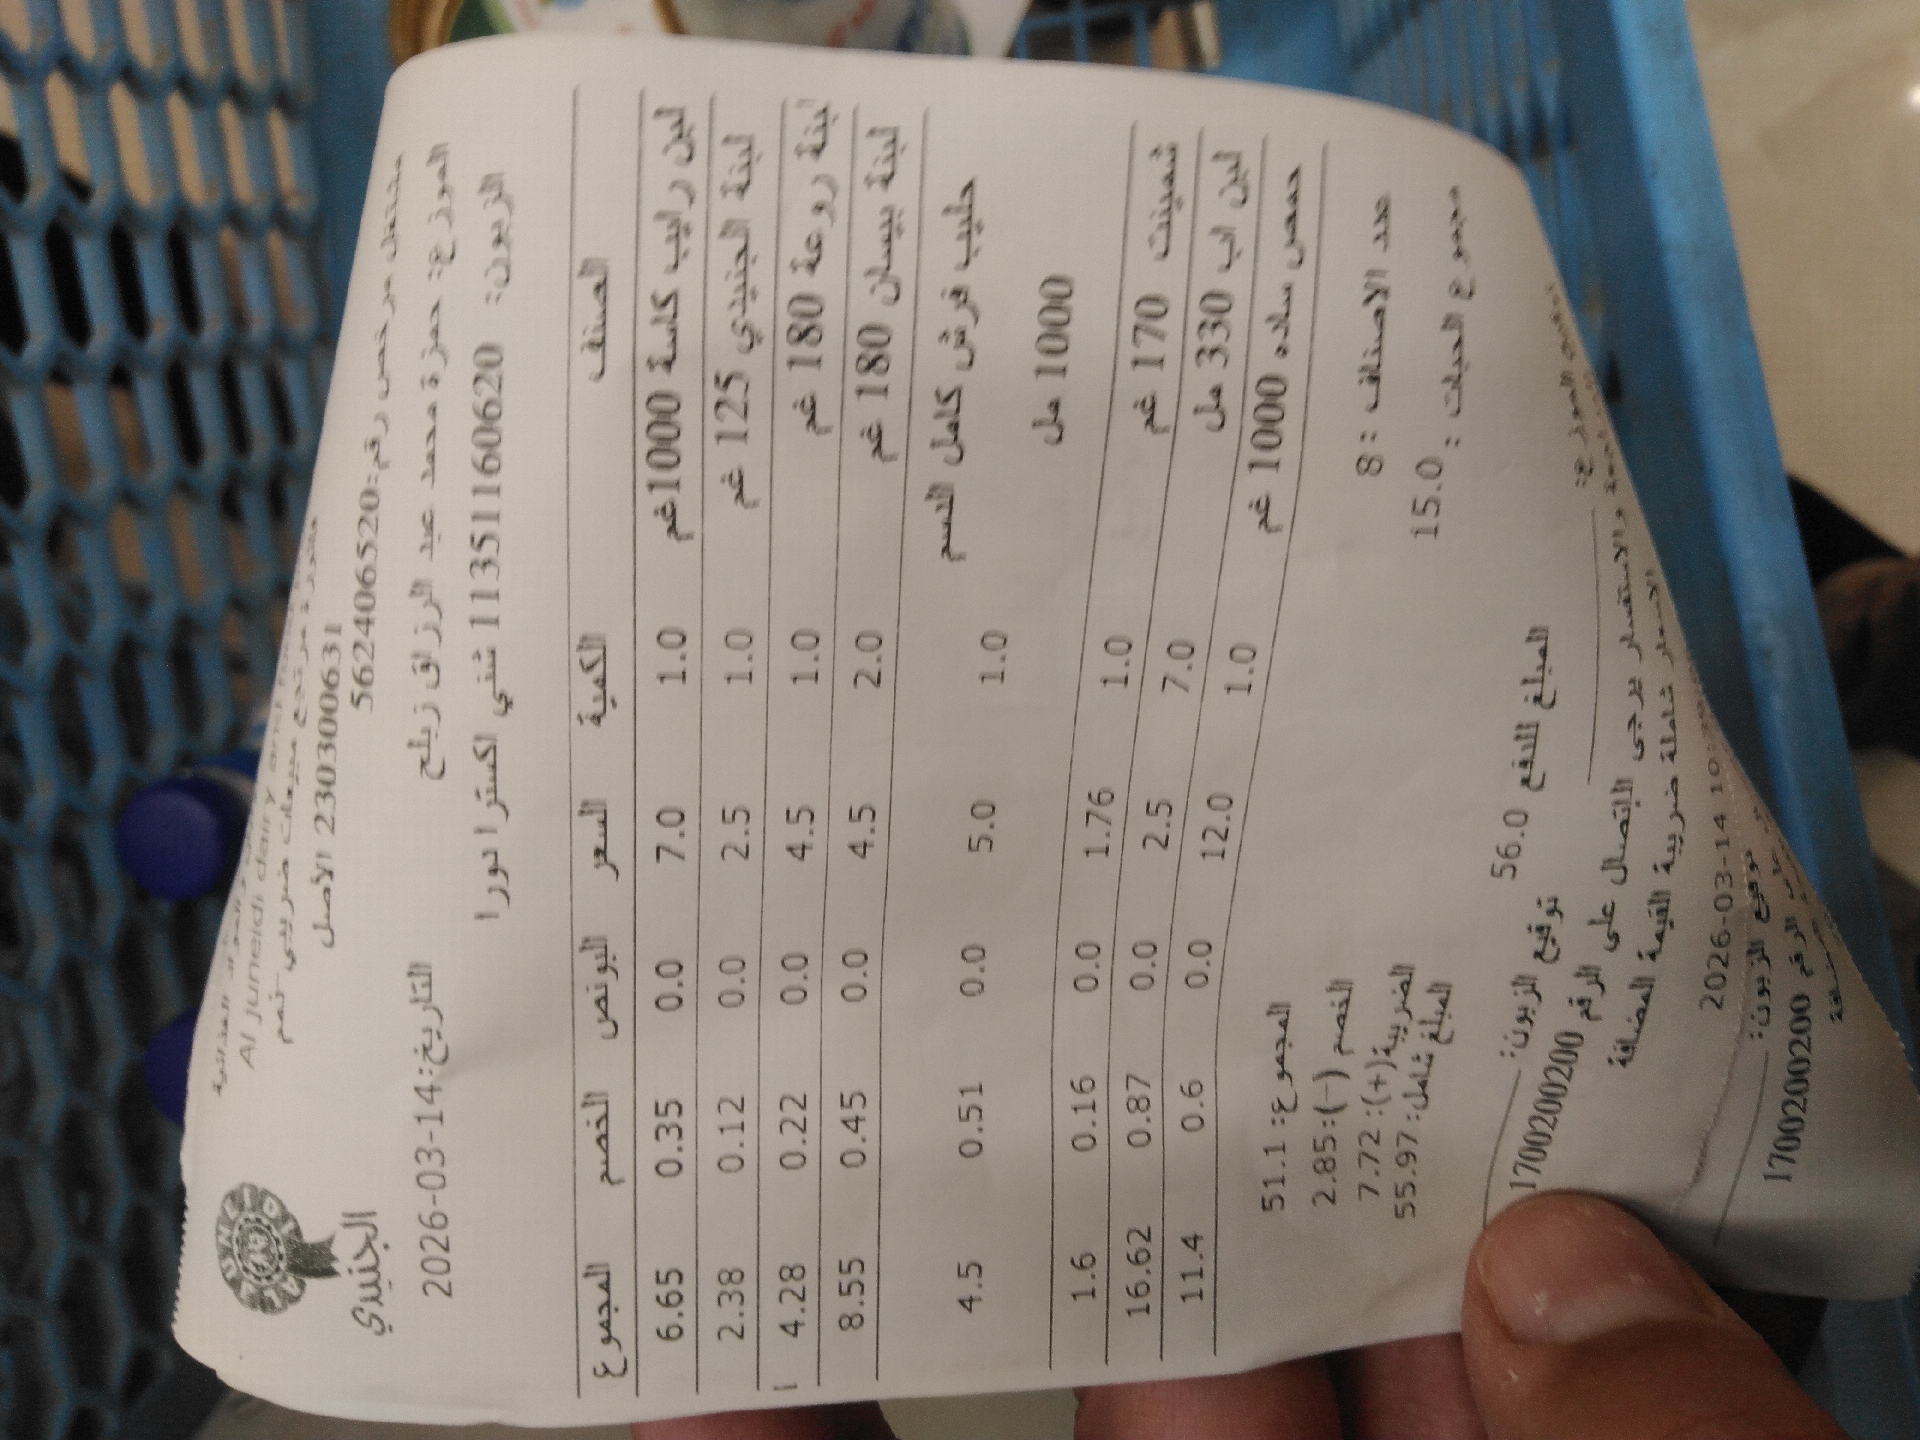 JUNEIDI
الجنيدي
Al Juneidi dairy and
فاتورة مرتجع مبيعات ضريبي خصم
الاصل 230300631
مشتغل مرخص رقم:562406520
التاريخ:14-03-2026
الموزع: حمزة محمد عبد الرزاق زيلح
الزبون: 11351160620 شني اكسترا دورا
الصنف الكمية السعر البونص الخصم المجموع
لبن رايب كاسة 1000غم 1.0 7.0 0.0 0.35 6.65
لبنة الجنيدي 125 غم 1.0 2.5 0.0 0.12 2.38
لبنة روعة 180 غم 1.0 4.5 0.0 0.22 4.28
لبنة بيسان 180 غم 2.0 4.5 0.0 0.45 8.55
حليب فرش كامل الدسم 1.0 5.0 0.0 0.51 4.5
1000 مل
شمينت 170 غم 1.0 1.76 0.0 0.16 1.6
لبن اب 330 مل 7.0 2.5 0.0 0.87 16.62
حمص ساده 1000 غم 1.0 12.0 0.0 0.6 11.4
عدد الاصناف :8
مجموع الحبات : 15.0
المجموع: 51.1
الخصم (-):2.85
الضريبة(+): 7.72
المبلغ شامل: 55.97
المبلغ للدفع 56.0
توقيع الموزع:
توقيع الزبون:
والاستفسار يرجى الاتصال على الرقم 1700200200
الاسعار شاملة ضريبة القيمة المضافة
2026-03-14
توقيع الزبون:
الرقم 1700200200